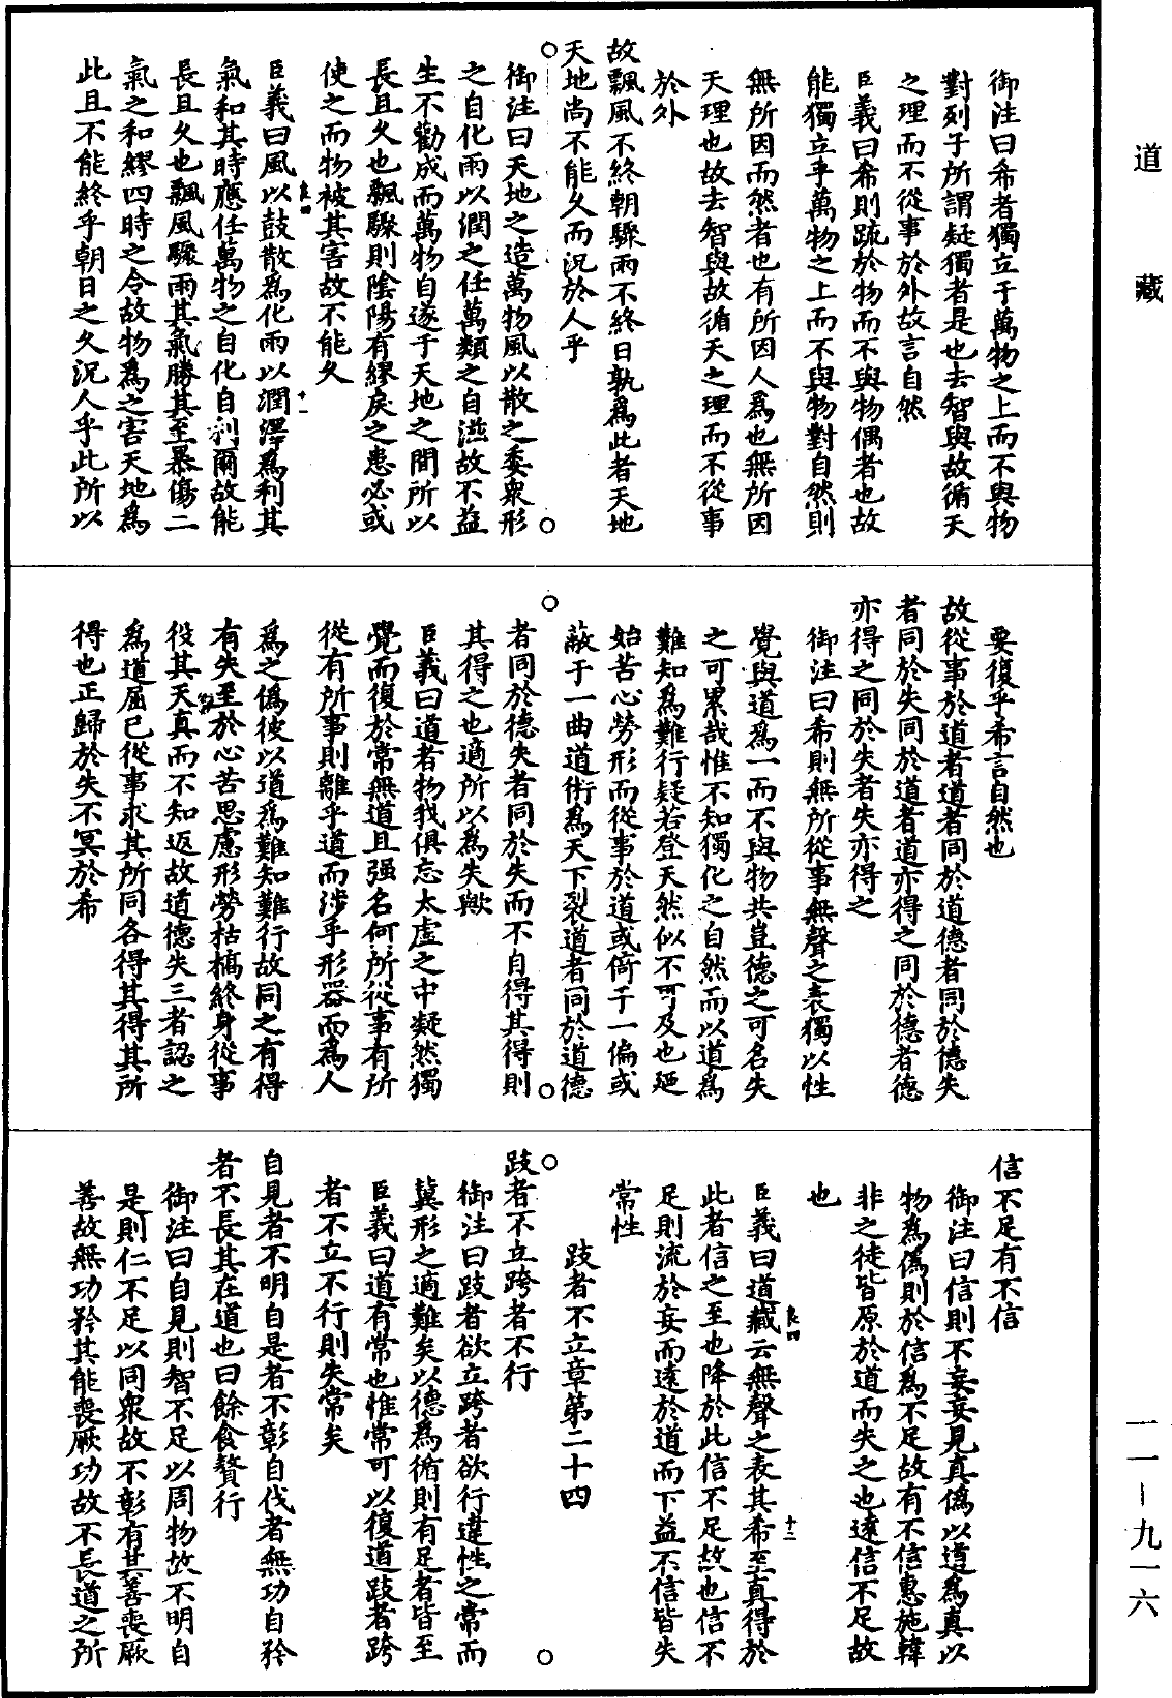 道藏
一一－九一六
御注曰希者獨立于萬物之上而不與物
對列子所謂疑獨者是也去智與故循天
之理而不從事於外故言自然
臣義曰希則疏於物而不與物偶者也故
能獨立乎萬物之上而不與物對自然則
無所因而然者也有所因人為也無所因
天理也故去智與故循天之理而不從事
於外
故飄風不終朝驟雨不終日孰為此者天地
天地尚不能久而況於人乎
御注曰天地之造萬物風以散之委衆形
之自化雨以潤之任萬類之自滋故不益
生不勸成而萬物自遂于天地之間所以
長且久也飄驟則陰陽有繆戾之患必或
使之而物被其害故不能久
良四
十一
臣義曰風以鼓散為化雨以潤澤為利其
氣和其時應任萬物之自化自利爾故能
長且久也飄風驟雨其氣勝其至暴傷二
氣之和繆四時之令故物為之害天地為
此且不能終乎朝日之久況人乎此所以
要復乎希言自然也
故從事於道者道者同於道德者同於德失
者同於失同於道者道亦得之同於德者德
亦得之同於失者失亦得之
御注曰希則無所從事無聲之表獨以性
覺與道為一而不與物共豈德之可名失
之可累哉惟不知獨化之自然而以道為
難知為難行疑若登天然似不可及也廼
始苦心勞形而從事於道或倚于一偏或
蔽于一曲道術為天下裂道者同於道德
者同於德失者同於失而不自得其得則
其得之也適所以為失歟
臣義曰道者物我俱忘太虛之中疑然獨
覺而復於常無道且强名何所從事有所
從有所事則離乎道而涉乎形器而為人
為之偽彼以道為難知難行故同之有得
有失至於心苦思慮形勞枯槁終身從事
役其天真而不知返故道德失三者認之
為道屈已從事求其所同各得其得其所
得也正歸於失不冥於希
信不足有不信
御注曰信則不妄妄見真偽以道為真以
物為偽則於信為不足故有不信惠施韓
非之徒皆原於道而失之也遠信不足故
也
良四
十二
臣義曰道藏云無聲之表其希至真得於
此者信之至也降於此信不足故也信不
足則流於妄而遠於道而下益不信皆失
常性
跂者不立章第二十四
跂者不立跨者不行
御注曰跂者欲立跨者欲行違性之常而
冀形之適難矣以德為循則有足者皆至
臣義曰道有常也惟常可以復道跂者跨
者不立不行則失常矣
自見者不明自是者不彰自伐者無功自矜
者不長其在道也曰餘食贅行
御注曰自見則智不足以周物故不明自
是則仁不足以同衆故不彰有其善喪厥
善故無功矜其能喪厥功故不長道之所